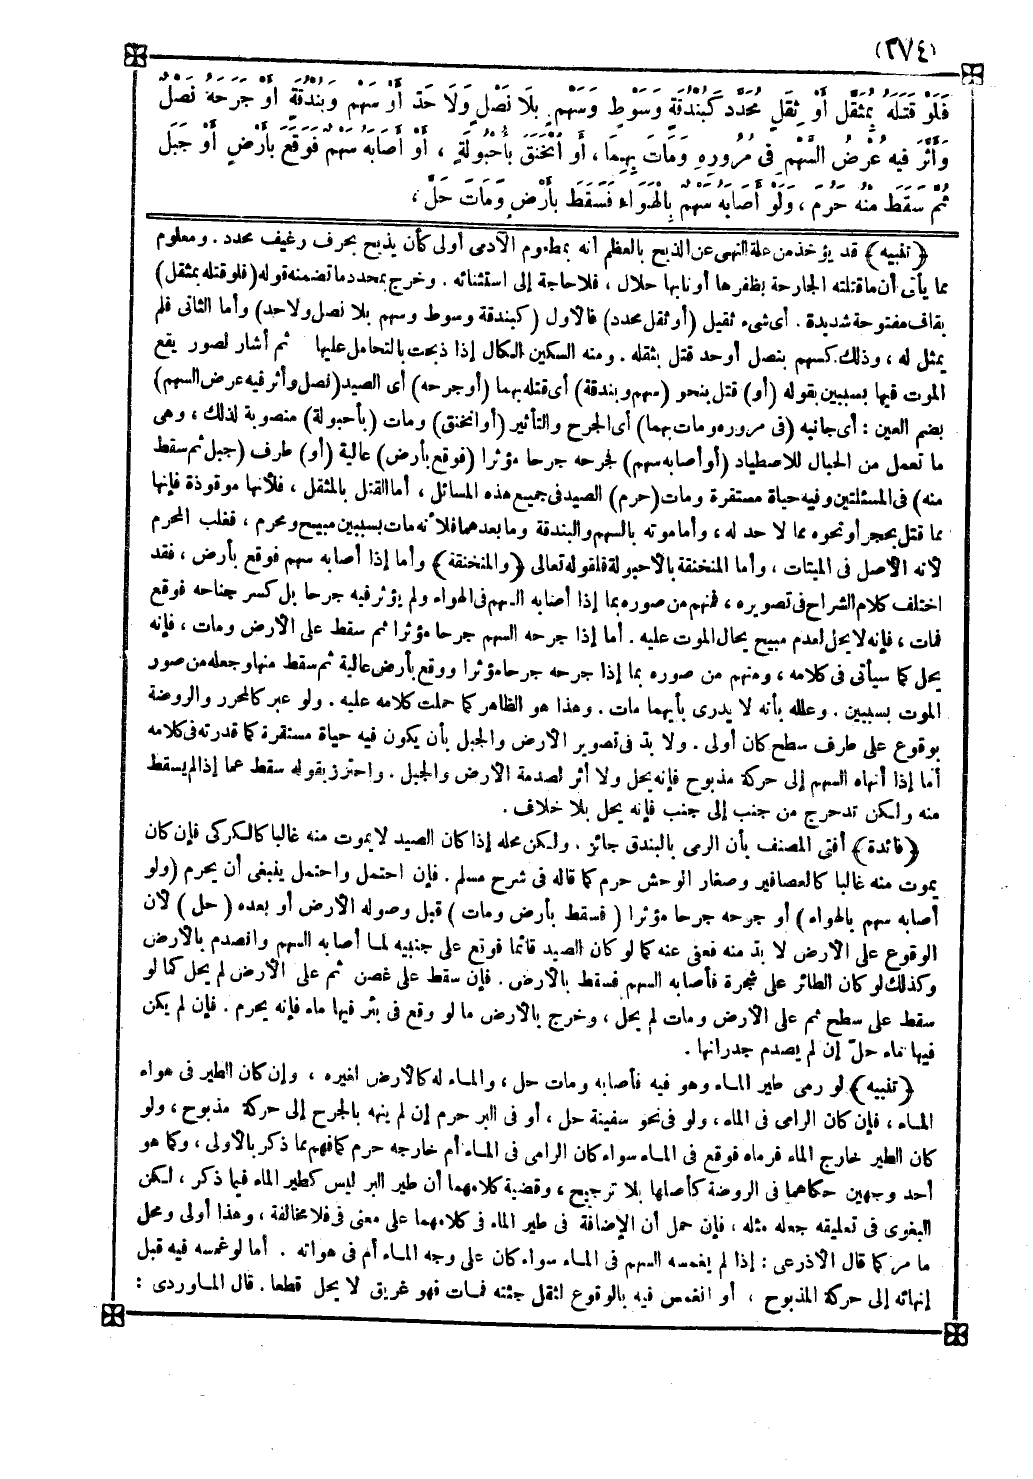 (٢٧٤)
فَلَوْ قَتَلَهُ بِمُثَقَّلٍ أَوْ ثِقَلِ مُحَدَّدٍ كَبُنْدُقَةٍ وَسَوْطٍ وَسَهْمٍ بِلَا نَصْلٍ وَلَا حَدٍّ أَوْ سَهْمٍ وَبُنْدُقَةٍ أَوْ جَرَحَهُ نَصْلٌ
وَأَثَّرَ فِيهِ عُرْضُ السَّهْمِ فِى مُرُورِهِ وَمَاتَ بِهِمَا ، أَوِ انْخَنَقَ بِأُحْبُولَةٍ ، أَوْ أَصَابَهُ سَهْمٌ فَوَقَعَ بِأَرْضٍ أَوْ جَبَلٍ
ثُمَّ سَقَطَ مِنْهُ حَرُمَ ، وَلَوْ أَصَابَهُ سَهْمٌ بِالْهَوَاءِ فَسَقَطَ بِأَرْضٍ وَمَاتَ حَلَّ ،
﴿تنبيه﴾ قد يؤخذ من علة النهى عن الذبح بالعظم أنه بمطعوم الآدمى أولى كأن يذبح بحرف رغيف محدد . ومعلوم
مما يأتى أن ما قتلته الجارحة بظفرها أو نابها حلال ، فلا حاجة إلى استثنائه . وخرج بمحدد ما تضمنه قوله (فلو قتله بمثقل)
بقاف مفتوحة شديدة . أى شىء ثقيل (أو ثقل محدد) فالأول (كبندقة وسوط وسهم بلا نصل ولا حد) وأما الثانى فلم
يمثل له ، وذلك كسهم بنصل أو حد قتل بثقله . ومنه السكين الكال إذا ذبحت بالتحامل عليها ثم أشار لصور يقع
الموت فيها بسببين بقوله (أو) قتل بنحو (سهم وبندقة) أى قتله بهما (أو جرحه) أى الصيد (نصل وأثر فيه عرض السهم)
بضم العين : أى جانبه (فى مروره ومات بهما) أى الجرح والتأثير (أو انخنق) ومات (بأحبولة) منصوبة لذلك ، وهى
ما تعمل من الحبال للاصطياد (أو أصابه سهم) لجرحه جرحا مؤثرا (فوقع بأرض) عالية (أو) طرف (جبل ثم سقط
منه) فى المسئلتين وفيه حياة مستقرة ومات (حرم) الصيد فى جميع هذه المسائل ، أما القتل بالمثقل ، فلأنها موقوذة فإنها
مما قتل بحجر أو نحوه مما لا حد له ، وأما موته بالسهم والبندقة وما بعدهما فلأنه مات بسببين مبيح ومحرم ، فغلب المحرم
لأنه الأصل فى الميتات ، وأما المنخنقة بالأحبولة فلقوله تعالى ﴿والمنخنقة﴾ وأما إذا أصابه سهم فوقع بأرض ، فقد
اختلف كلام الشراح فى تصويره ، فمنهم من صوره بما إذا أصابه السهم فى الهواء ولم يؤثر فيه جرحا بل كسر جناحه فوقع
فمات ، فإنه لا يحل لعدم مبيح يحال الموت عليه . أما إذا جرحه السهم جرحا مؤثرا ثم سقط على الأرض ومات ، فإنه
يحل كما سيأتى فى كلامه ، ومنهم من صوره بما إذا جرحه جرحا مؤثرا ووقع بأرض عالية ثم سقط منها وجعله من صور
الموت بسببين . وعلله بأنه لا يدرى بأيهما مات . وهذا هو الظاهر كما حملت كلامه عليه . ولو عبر كالمحرر والروضة
بوقوع على طرف سطح كان أولى . ولا بدّ فى تصوير الأرض والجبل بأن يكون فيه حياة مستقرة كما قدرته فى كلامه
أما إذا أنهاه السهم إلى حركة مذبوح فإنه يحل ولا أثر لصدمة الأرض والجبل . واحترز بقوله سقط عما إذا لم يسقط
منه ولكن تدحرج من جنب إلى جنب فإنه يحل بلا خلاف .
﴿فائدة﴾ أفتى المصنف بأن الرمى بالبندق جائز . ولكن محله إذا كان الصيد لا يموت منه غالبا كالكركى فإن كان
يموت منه غالبا كالعصافير وصغار الوحش حرم كما قاله فى شرح مسلم . فإن احتمل واحتمل ينبغى أن يحرم (ولو
أصابه سهم بالهواء) أو جرحه جرحا مؤثرا ( فسقط بأرض ومات ) قبل وصوله الأرض أو بعده ( حل ) لأن
الوقوع على الأرض لا بدّ منه فعفى عنه كما لو كان الصيد قائما فوقع على جنبه لما أصابه السهم وانصدم بالأرض
وكذلك لو كان الطائر على شجرة فأصابه السهم فسقط بالأرض . فإن سقط على غصن ثم على الأرض لم يحل كما لو
سقط على سطح ثم على الأرض ومات لم يحل ، وخرج بالأرض ما لو وقع فى بئر فيها ماء فإنه يحرم . فإن لم يكن
فيها ماء حلّ إن لم يصدم جدرانها .
﴿تنبيه﴾ لو رمى طير الماء وهو فيه فأصابه ومات حل ، والماء له كالأرض لغيره ، وإن كان الطير فى هواء
الماء ، فإن كان الرامى فى الماء ، ولو فى نحو سفينة حل ، أو فى البر حرم إن لم ينهه بالجرح إلى حركة مذبوح ، ولو
كان الطير خارج الماء فرماه فوقع فى الماء سواء كان الرامى فى الماء أم خارجه حرم كما فهم بما ذكر بالأولى ، وكما هو
أحد وجهين حكاهما فى الروضة كأصلها بلا ترجيح ، وقضية كلامهما أن طير البر ليس كطير الماء فيما ذكر ، لكن
البغوى فى تعليقه جعله مثله ، فإن حمل أن الإضافة فى طير الماء فى كلامهما على معنى فى فلا مخالفة ، وهذا أولى ومحل
ما مر كما قال الأذرعى : إذا لم يغمسه السهم فى الماء سواء كان على وجه الماء أم فى هوائه . أما لو غمسه فيه قبل
إنهائه إلى حركة المذبوح ، أو انغمس فيه بالوقوع لثقل جثته فمات فهو غريق لا يحل قطعا . قال الماوردى :